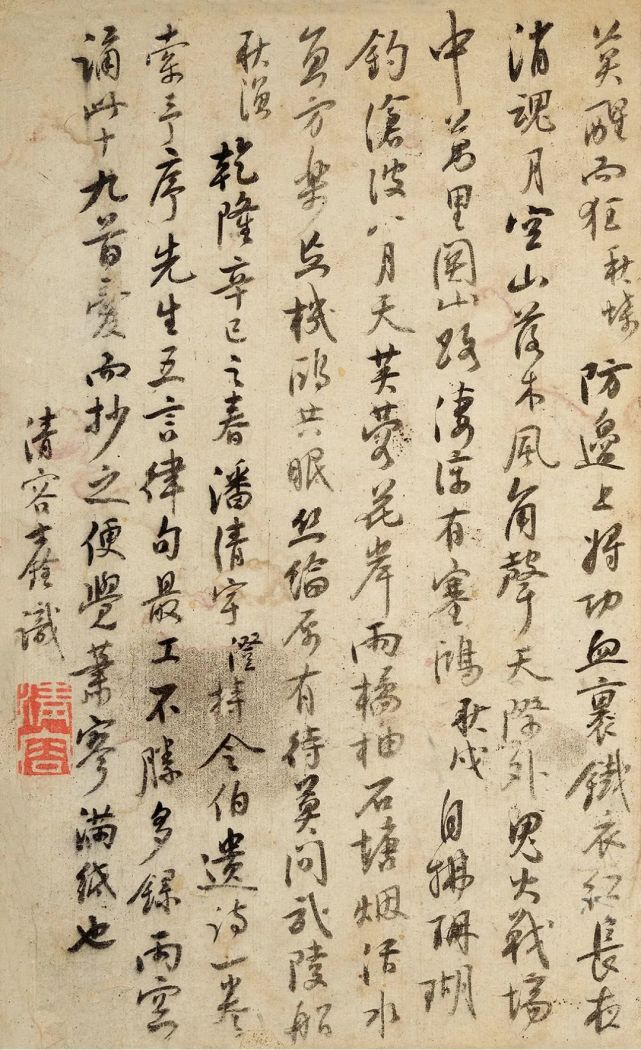 莫醒而狂 秋城 防邊上將功血裹鐵衣紅長夜
消魂月空山落木風角聲天際外鬼火戰場
中萬里關山路淒涼有塞鴻 秋戍 自拂珊瑚
釣滄波八月天芙蓉花岸雨橘柚石塘烟活水
魚方樂忘機鷗共眠絲綸原有待莫問武陵船
秋漁 乾隆辛巳之春潘清宇澄持令伯遺詩一卷
索予序先生五言律句最工不勝多錄雨窓
誦此十九首愛而抄之便覺蕭寥滿紙也
清容士銓識
清容